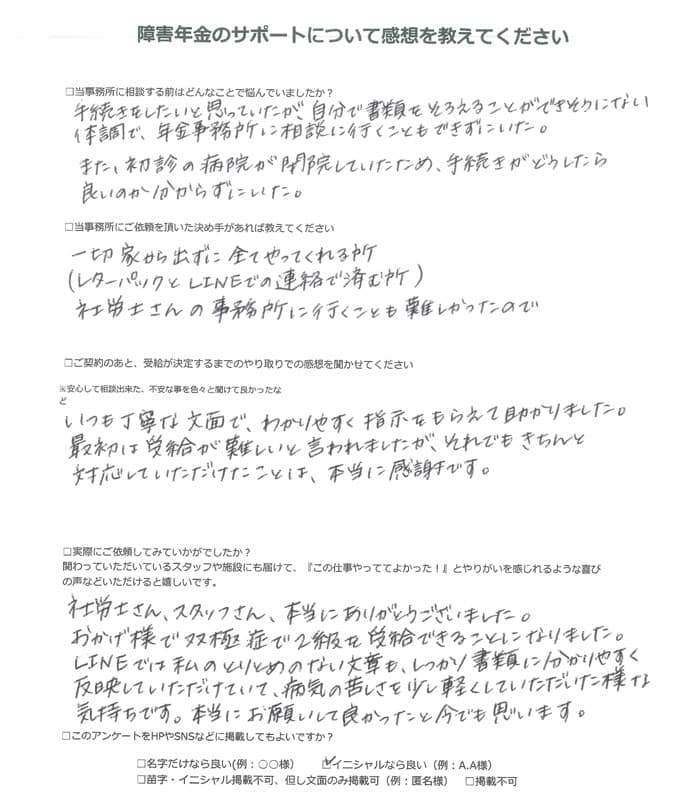 障害年金のサポートについて感想を教えてください
□当事務所に相談する前はどんなことで悩んでいましたか？
手続きをしたいと思っていたが、自分で書類をそろえることができそうにない
体調で、年金事務所に相談に行くこともできずにいた。
また、初診の病院が閉院していたため、手続きがどうしたら
良いのか分からずにいた。
□当事務所にご依頼を頂いた決め手があれば教えてください
一切家から出ずに全てやってくれる所
(レターパックとLINEでの連絡で済む所)
社労士さんの事務所に行くことも難しかったので
□ご契約のあと、受給が決定するまでのやり取りでの感想を聞かせてください
※安心して相談出来た、不安な事を色々と聞けて良かったな
ど
いつも丁寧な文面で、わかりやすく指示をもらえて助かりました。
最初は受給が難しいと言われましたが、それでもきちんと
対応していただけたことは、本当に感謝です。
□実際にご依頼してみていかがでしたか？
関わっていただいているスタッフや施設にも届けて、『この仕事やっててよかった！』とやりがいを感じれるような喜び
の声などいただけると嬉しいです。
社労士さん、スタッフさん、本当にありがとうございました。
おかげ様で双極症で2級を受給できることになりました。
LINEでは私のとりとめのない文章も、しっかり書類に分かりやすく
反映していただけていて、病気の苦しさを少し軽くしていただいた様な
気持ちです。本当にお願いして良かったと今でも思います。
□このアンケートをHPやSNSなどに掲載してもよいですか？
□名字だけなら良い(例：○○様) ☑イニシャルなら良い（例：A.A様）
□苗字・イニシャル掲載不可、但し文面のみ掲載可（例：匿名様） □掲載不可